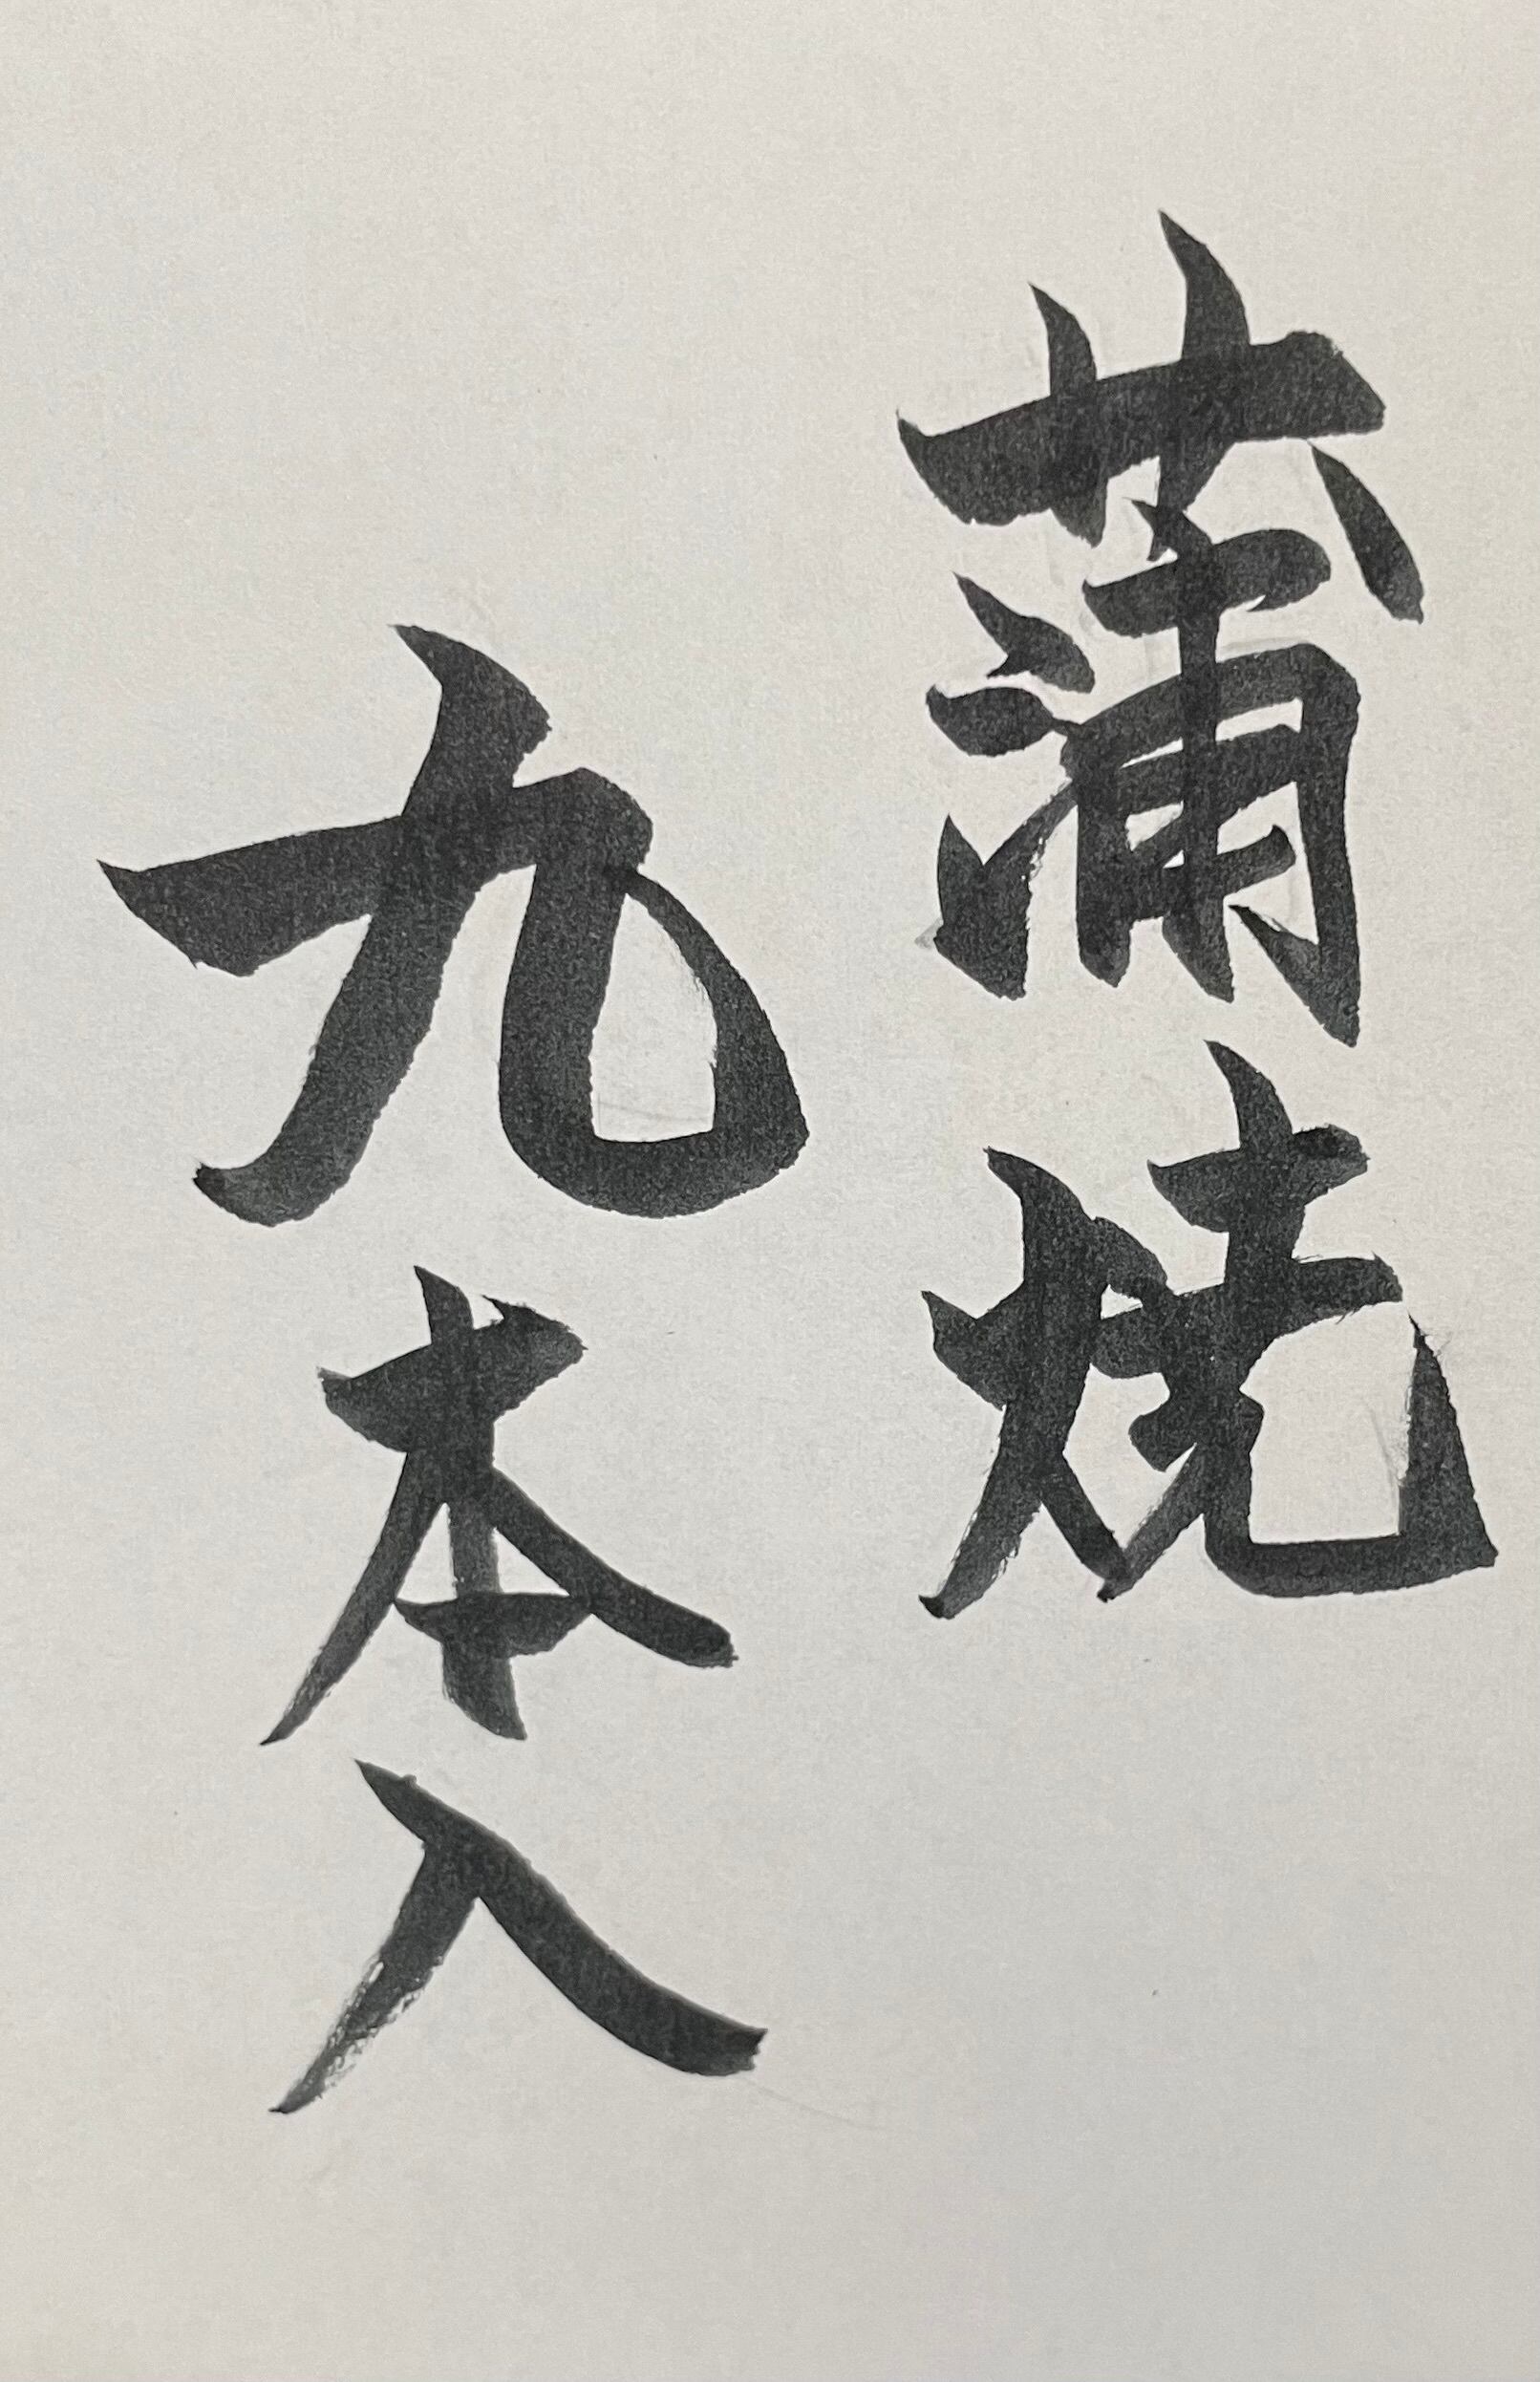 蒲焼
九本入